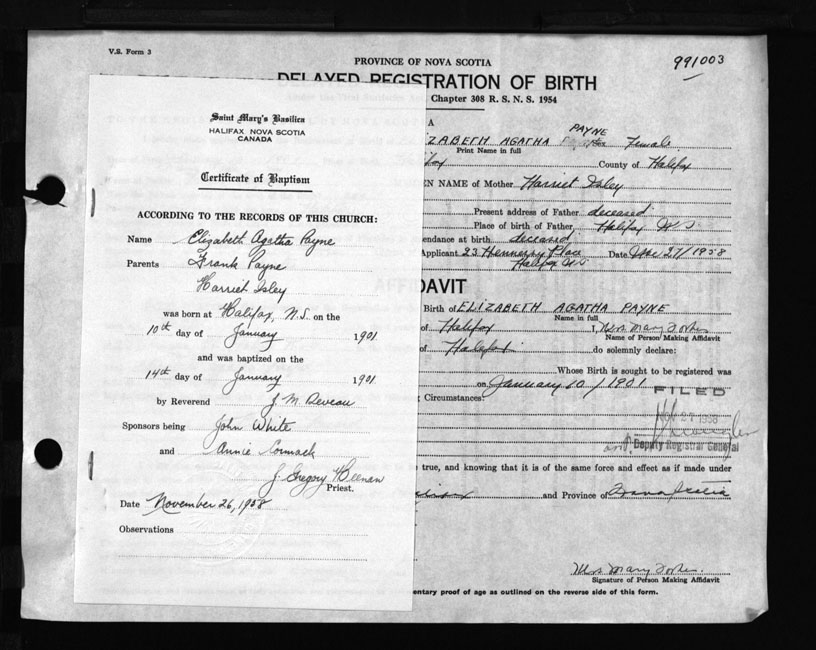 V.S. Form 3
991003
PROVINCE OF NOVA SCOTIA
DELAYED REGISTRATION OF BIRTH
Chapter 308 R. S. N. S. 1954
Saint Mary's Basilica
HALIFAX NOVA SCOTIA
CANADA
Certificate of Baptism
ACCORDING TO THE RECORDS OF THIS CHURCH:
Name Elizabeth Agatha Payne
Parents Frank Payne
Harriet Isley
was born at Halifax, N.S. on the
10th day of January 1901
and was baptized on the
14th day of January 1901
by Reverend J. M. Deveau
Sponsors being John White
and Annie Cormack
J. Gregory
Priest.
Date November 26, 1958
Observations
A
PAYNE
IZABETH AGATHA Sex Female
Print Name in full
County of Halifax
EN NAME of Mother Harriet Isley
Present address of Father deceased
Place of birth of Father Halifax NS
endance at birth deceased
Applicant 23 Hennessy Place Date Nov 27/1958
Halifax NS
AFFIDAVIT
Birth of ELIZABETH AGATHA PAYNE
Name in full
of Halifax I, Mrs Mary
Name of Person Making Affidavit
of Halifax do solemnly declare:
Whose Birth is sought to be registered was
on January 10/1901
FILED
Circumstances:
NOV 27 1958
Deputy Registrar General
true, and knowing that it is of the same force and effect as if made under
and Province of Nova Scotia
Mrs Mary
Signature of Person Making Affidavit
entary proof of age as outlined on the reverse side of this form.